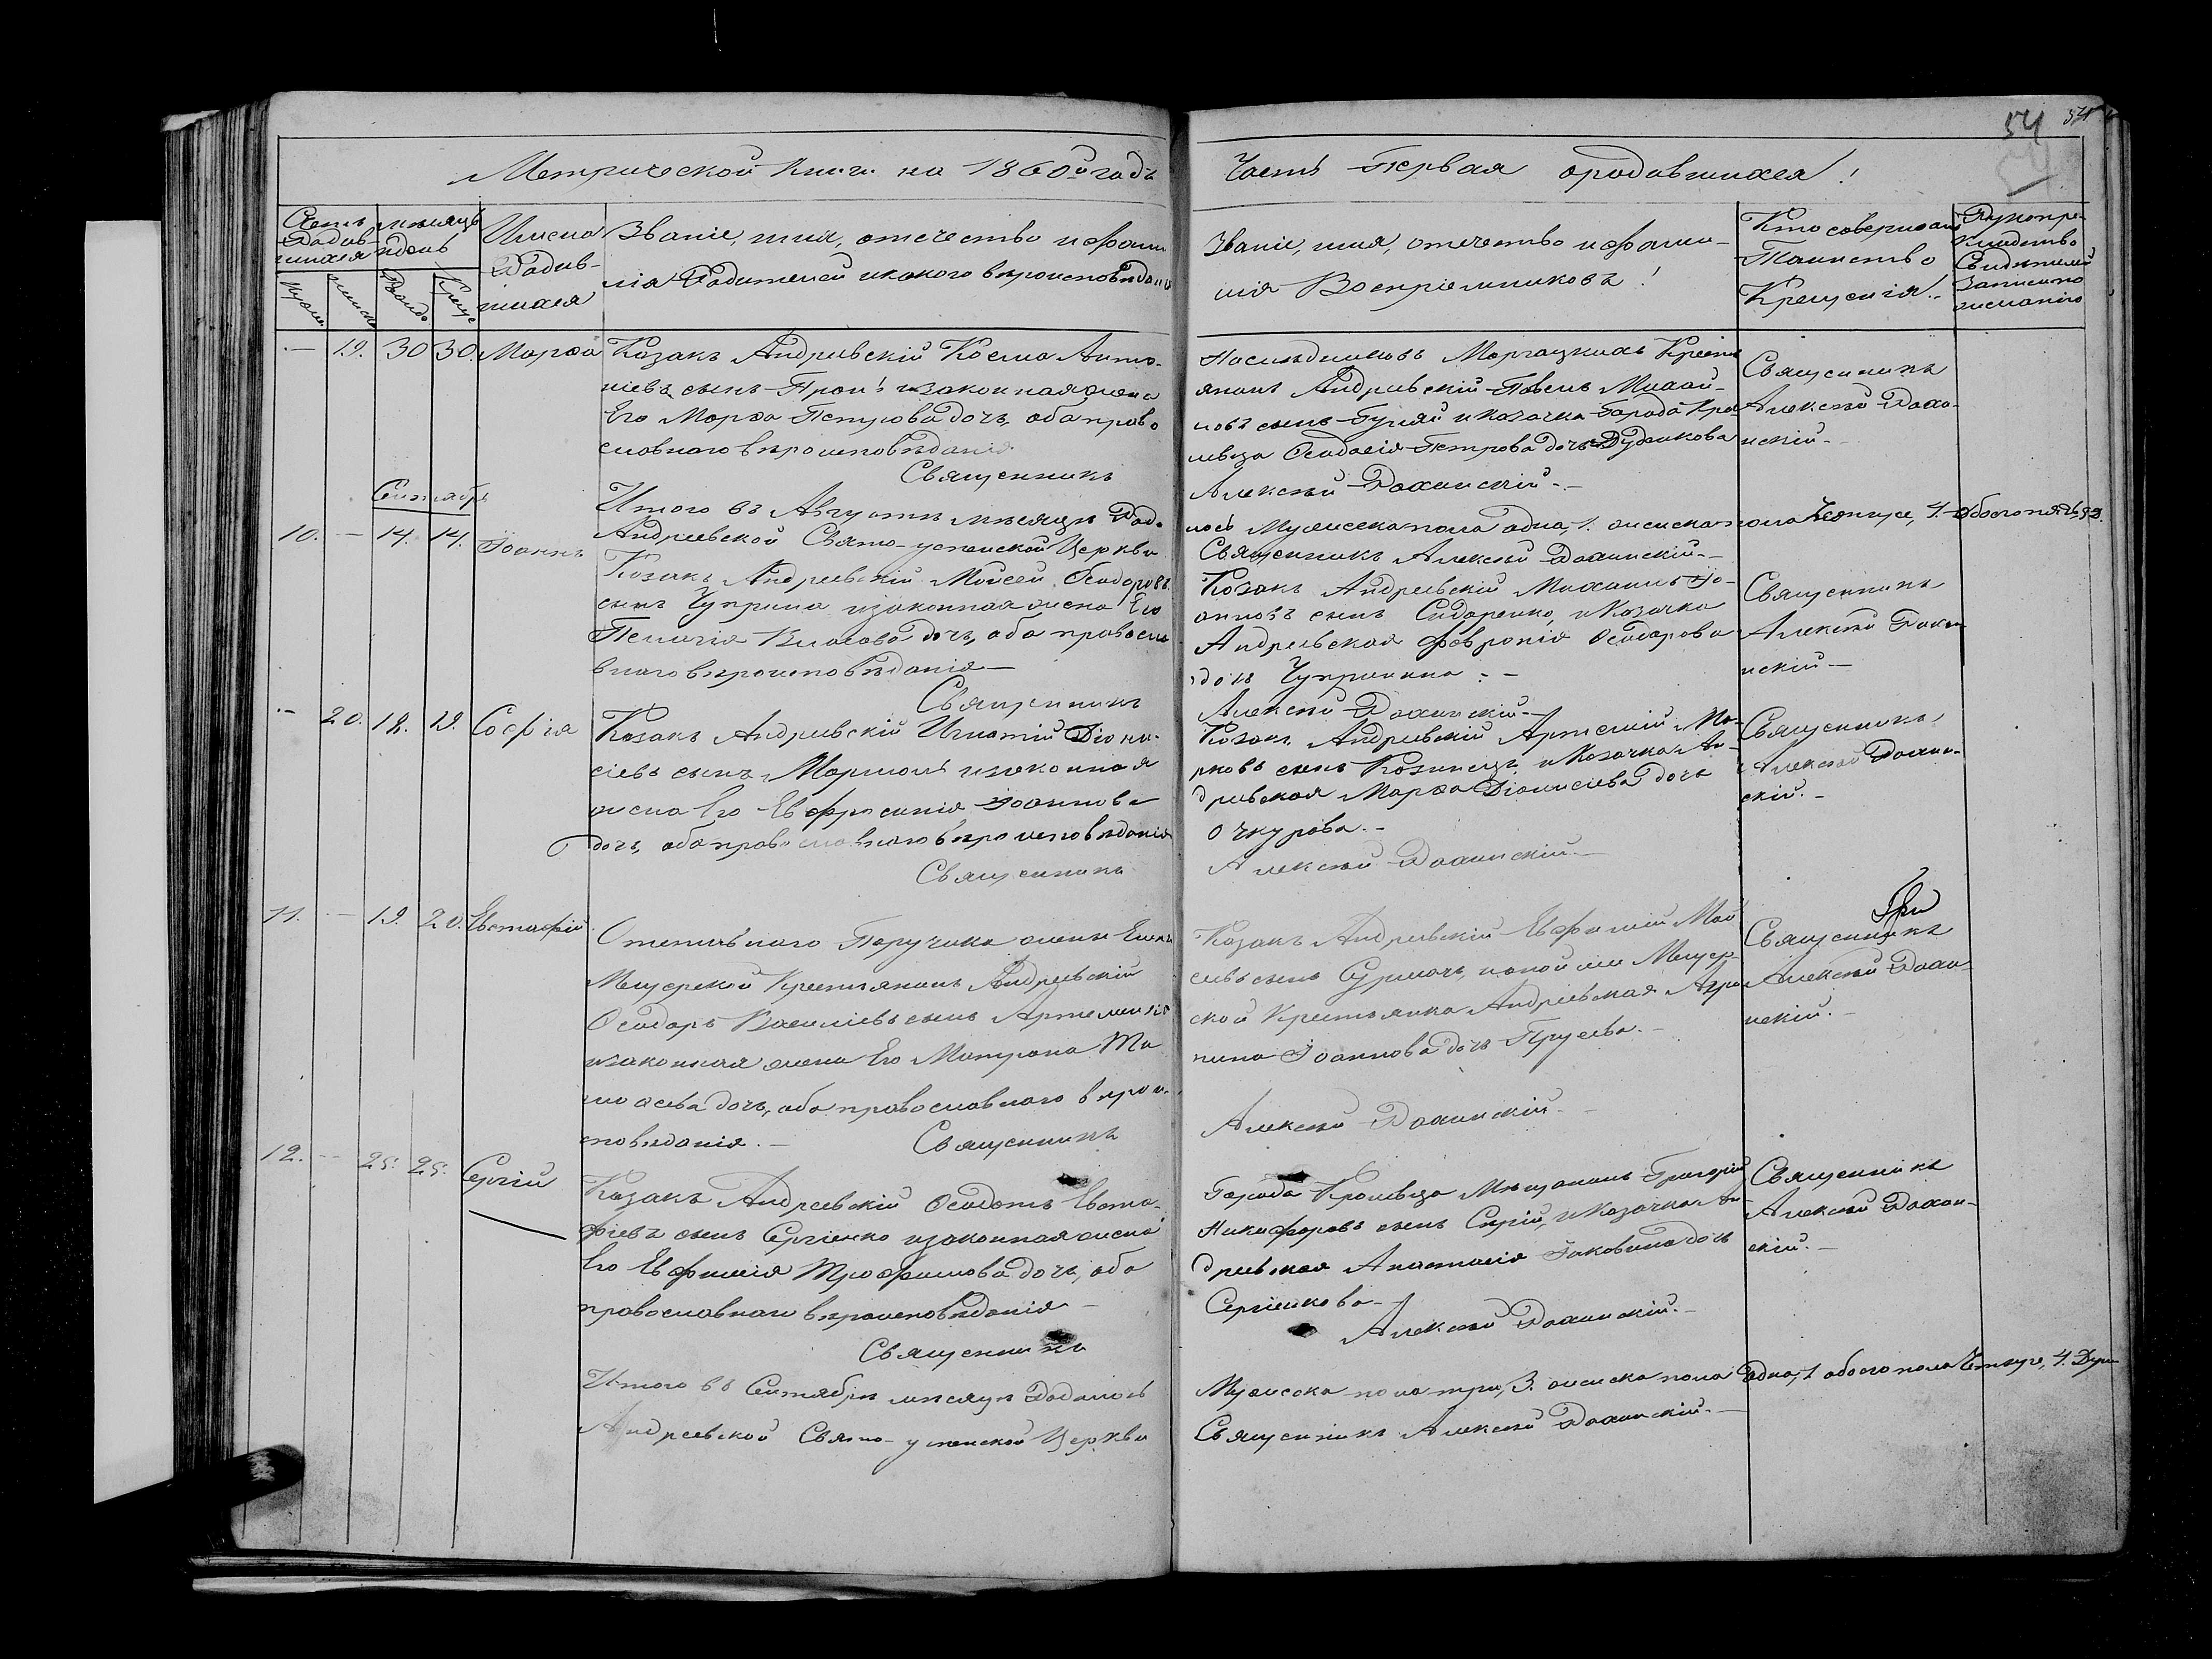 54 54
Метрической книги на 1860й годъ
Часть Первая ородившихся!
Счетъ родив-шихся
мѣсяцъ и день
Имена Родив-шихся
Званіе, имя, отчество и фами-
лія Родителей и какого вѣроисповѣданія
Званіе, имя, отчество и фами-
лія Воспріемниковъ!
Кто совершалъ
Таинство
Крещенія.
Рукопри-
кладство
Свидѣтелей
Записи по
желанію
— 19. 30 30. Марѳа
Козакъ Андреевскій Косма Анто-
ніевъ сынъ изаконная жена
Его Марѳа Петрова дочь, оба право
славнаго вѣроисповѣданія
Священникъ
Наслѣдниковъ Крест
янинъ Андреевскій Павелъ Михаи-
ловъ сынъ и козачка Города Кро
левца Ѳеодосія Петрова дочь Дудникова
Алексѣй Дахинскій. —
Священникъ
Алексѣй Дахи-
нскій. —
Сентябрь
Итого въ Августѣ мѣсяцѣ Роди
Андреевской Свято-успенской Церкви
лось Мужеска пола одна, 1. женска пола Четыре, 4. обоего пять 5.
Священникъ Алексѣй Дахинскій. —
10. — 14. 14. Іоаннъ
Козакъ Андреевскій Моѵсей Ѳеодоровъ
сынъ Чуприна изаконная жена Его
Пелагія Власова дочь, оба правосла
внаго вѣроисповѣданія —
Священникъ
Козакъ Андреевскій Михаилъ Іо-
анновъ сынъ Сидоренко, и Козачка
Андреевская Февронія Ѳеодорова
дочь Чуприна. —
Алексѣй Дахинскій —
Священникъ
Алексѣй Дахи
нскій —
— 20. 18. 19. Софія
Козакъ Андреевскій Игнатій Діони-
сіевъ сынъ изаконная
жена Его Евфросинія Іоаннова
дочь, оба православнаго вѣроисповѣданія
Священникъ
Козакъ Андреевскій Артемій Ма-
рковъ сынъ Козинецъ, и Козачка Ан-
дреевская Марѳа Діонисіева дочь
Очкурова. —
Алексѣй Дахинскій —
Священникъ
Алексѣй Дахин-
скій. —
11. — 19. 20. Евстафій
Отставнаго Поручика жены Елены
Мещерской Крестьянинъ Андреевскій
Ѳеодоръ Василіевъ сынъ
изаконная жена Его Матрона Ти
моѳеева дочь, оба православнаго вѣроис-
повѣданія. — Священникъ
Козакъ Андреевскій Евфимій Мои
сеевъ сынъ Сурмачъ, и той же Мещер-
ской Крестьянка Андреевская Агри
пина Іоаннова дочь
Алексѣй Дахинскій —
Священникъ
Алексѣй Дахи-
нскій. —
12. — 25. 25. Сергій
Козакъ Андреевскій Ѳеодотъ Евста-
фіевъ сынъ Сергіенко изаконная жена
Его Евфимія Трофимова дочь, оба
православнаго вѣроисповѣданія —
Священникъ
Города Кролевца Мѣщанинъ Григорій
Никифоровъ сынъ и Козачка Ан-
дреевская Анастасія Іаковлева дочь
Сергіенкова —
Алексѣй Дахинскій. —
Священникъ
Алексѣй Дахин-
скій. —
Итого въ Сентябрѣ мѣсяцѣ Родилось
Андреевской Свято-успенской Церкви
Мужеска пола три, 3. женска пола одна, 1 обоего пола Четыре, 4. Душъ
Священникъ Алексѣй Дахинскій. —